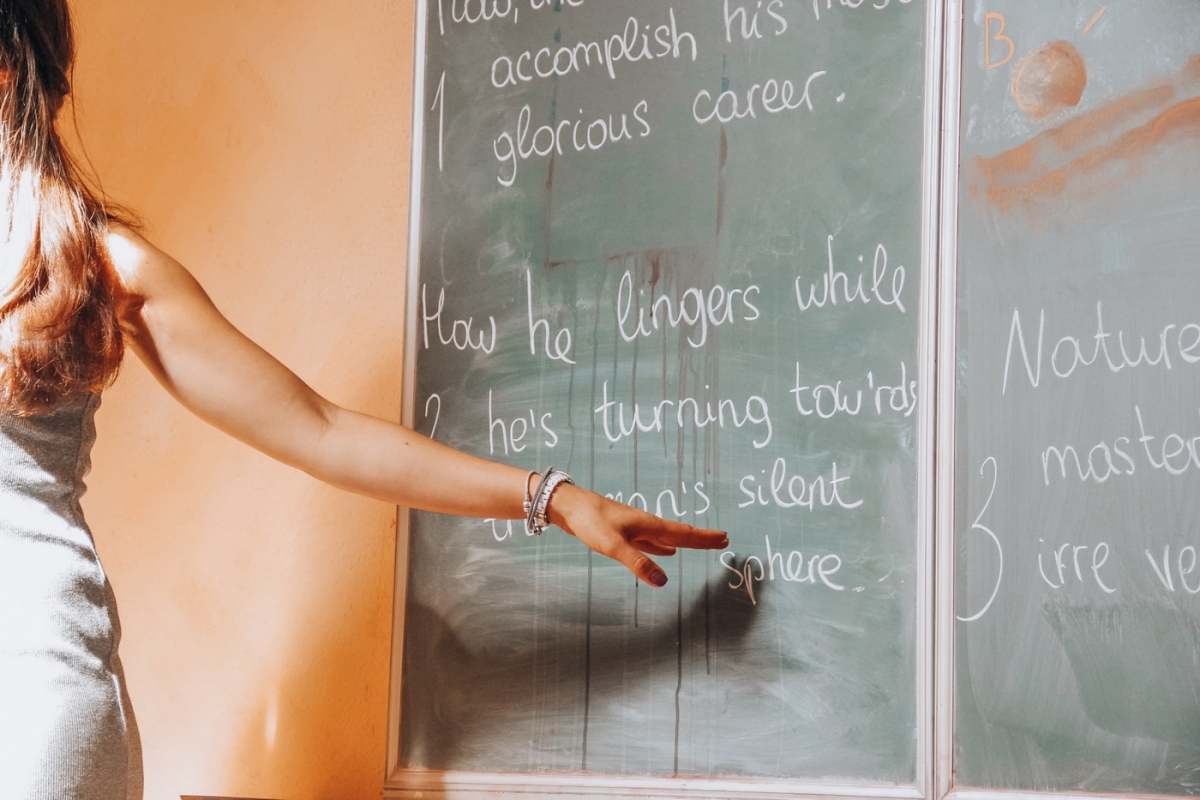 accomplish his
1
glorious career.
How he lingers while
2 he's turning tow'rds
silent
sphere.
B
Nature
3
irre ve